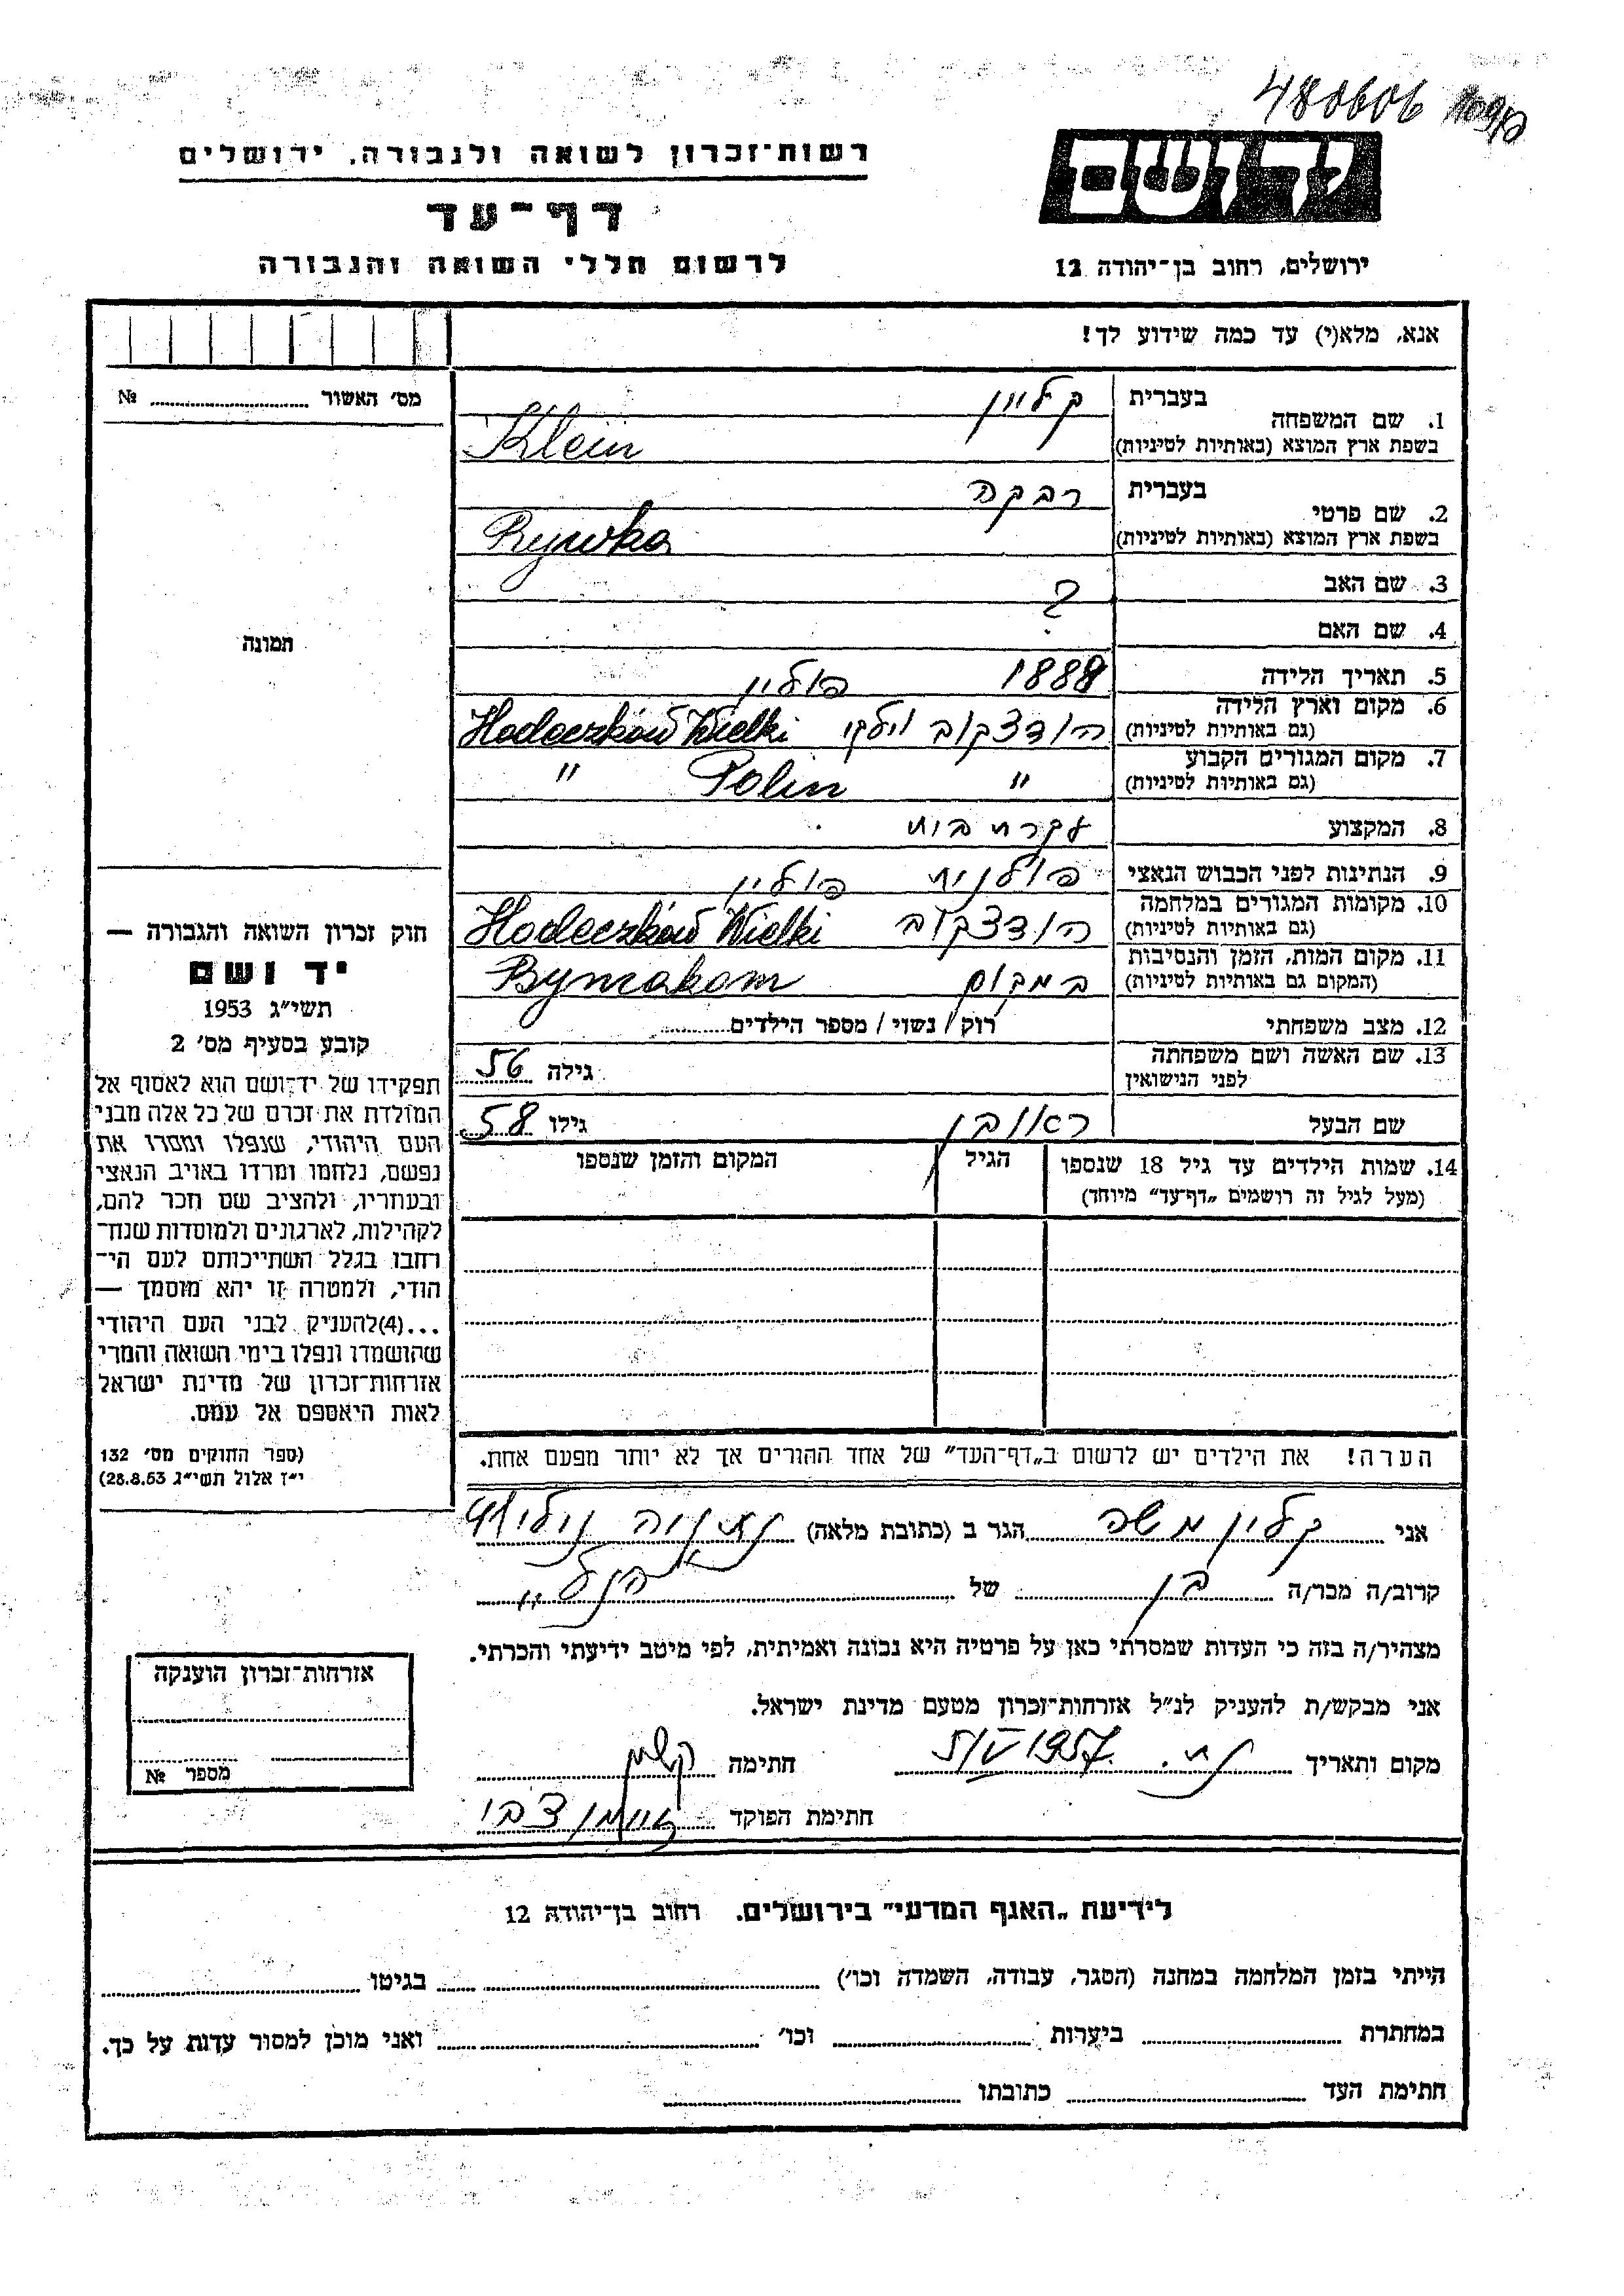 480606
רשות־זכרון לשואה ולגבורה, ירושלים
יד ושם
דף־עד
לרשום חללי השואה והגבורה
ירושלים, רחוב בן־יהודה 12
אנא, מלא(י) עד כמה שידוע לך!
מס' האשור № 
1. שם המשפחה בעברית קליין
בשפת ארץ המוצא (באותיות לטיניות) Klein
2. שם פרטי בעברית רבקה
בשפת ארץ המוצא (באותיות לטיניות) Rywka
3. שם האב ?
4. שם האם
תמונה
5. תאריך הלידה 1888
6. מקום וארץ הלידה פולין
(גם באותיות לטיניות) הודצקוב וילקי Hodaczków Wielki
7. מקום המגורים הקבוע
(גם באותיות לטיניות) " Polin "
8. המקצוע עקרת בית
9. הנתינות לפני הכבוש הנאצי פולנית
10. מקומות המגורים במלחמה פולין
(גם באותיות לטיניות) הודצקוב Hodeczków Wielki
11. מקום המות, הזמן והנסיבות
(המקום גם באותיות לטיניות) במקום Bymakom
12. מצב משפחתי רוק / נשוי / מספר הילדים
13. שם האשה ושם משפחתה
לפני הנישואין גילה 56
שם הבעל ראובן גילו 58
14. שמות הילדים עד גיל 18 שנספו הגיל המקום והזמן שנספו
(מעל לגיל זה רושמים „דף־עד" מיוחד)
הערה! את הילדים יש לרשום ב„דף־העד" של אחד ההורים אך לא יותר מפעם אחת.
חוק זכרון השואה והגבורה —
יד ושם
תשי"ג 1953
קובע בסעיף מס' 2
תפקידו של יד־ושם הוא לאסוף אל
המולדת את זכרם של כל אלה מבני
העם היהודי, שנפלו ומסרו את
נפשם, נלחמו ומרדו באויב הנאצי
ובעוזריו, ולהציב שם וזכר להם,
לקהילות, לארגונים ולמוסדות שנח־
רבו בגלל השתייכותם לעם הי־
הודי, ולמטרה זו יהא מוסמך —
...(4)להעניק לבני העם היהודי
שהושמדו ונפלו בימי השואה והמרי
אזרחות־זכרון של מדינת ישראל
לאות היאספם אל עמם.
(ספר החוקים מס' 132
י"ז אלול תשי"ג 28.8.53)
אני קליין משה הגר ב (כתובת מלאה) נתניה
קרוב/ה מכר/ה בן של הנ"ל
מצהיר/ה בזה כי העדות שמסרתי כאן על פרטיה היא נכונה ואמיתית, לפי מיטב ידיעתי והכרתי.
אני מבקש/ת להעניק לנ"ל אזרחות־זכרון מטעם מדינת ישראל.
מקום ותאריך נת. 5/V 1957 חתימה קליין
חתימת הפוקד צבי
אזרחות־זכרון הוענקה
מספר №
לידיעת „האגף המדעי" בירושלים. רחוב בן־יהודה 12
הייתי בזמן המלחמה במחנה (הסגר, עבודה, השמדה וכו') בגיטו
במחתרת ביערות וכו' ואני מוכן למסור עדות על כך.
חתימת העד כתובתו